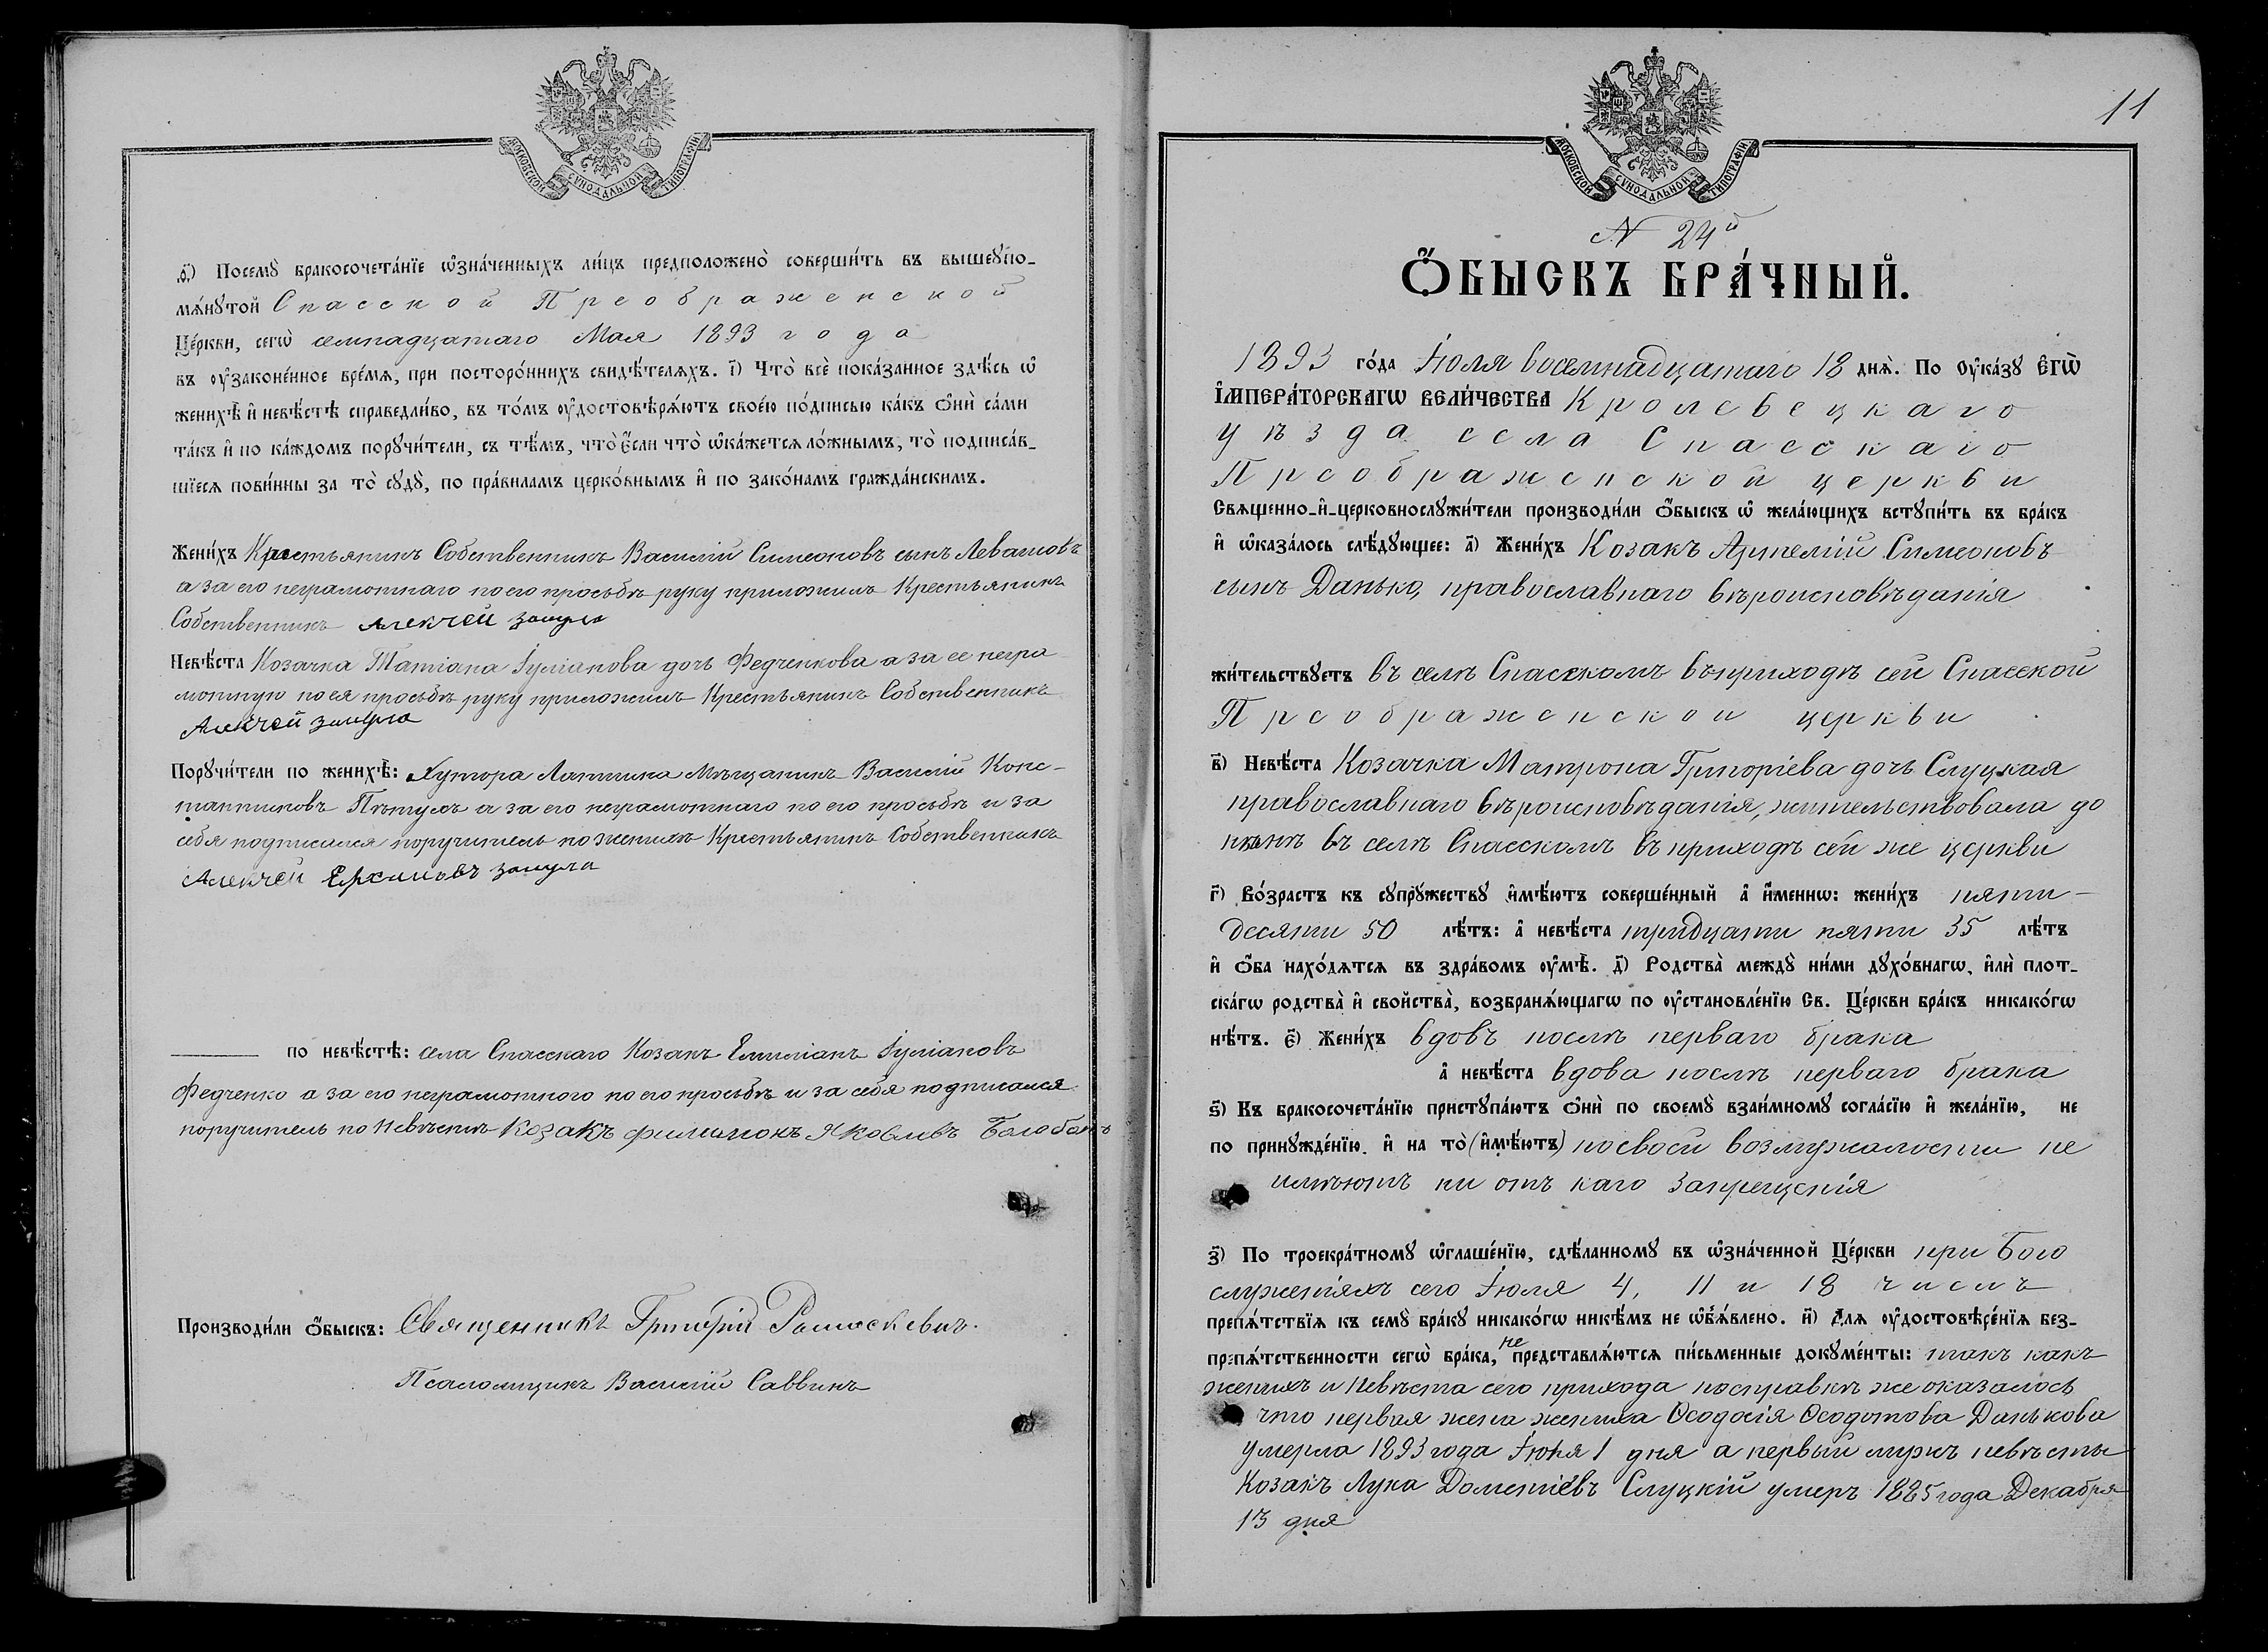 МОСКОВСКОЙ СѴНОДАЛЬНОЙ ТИПОГРАФІИ
ѳ҃) Посемꙋ̀ бракосочета́нїе ѡ҆зна́ченныхъ ли́цъ предположено̀ соверши́ть въ вышеꙋпо-
мѧ́нꙋтой Спасской Преображенской
Це́ркви, сегѡ̀ семнадцатаго Мая 1893 года
въ оу҆законе́нное вре́мѧ, при посторо́ннихъ свидѣ́телѧхъ. і҃) Что̀ всѐ пока́занное здѣ́сь ѡ҆
женихѣ̀ и҆ невѣ́стѣ справедли́во, въ то́мъ оу҆достовѣрѧ́ютъ свое́ю по́дписью ка́къ ѻ҆нѝ са́ми
та́къ и҆ по ка́ждомъ порꙋчи́тели, съ тѣ́мъ, что̀ є҆́сли что̀ ѡ҆ка́жется ло́жнымъ, то̀ подписа́в-
шїеся пови́нны за то̀ сꙋдꙋ̀, по пра́виламъ церко́внымъ и҆ по зако́намъ гражда́нскимъ.
Жени́хъ Крестьянинъ Собственникъ Василій Симеоновъ сынъ Левашовъ
а за его неграмотнаго по его просьбѣ руку приложилъ Крестьянинъ
Собственникъ Алексей
Невѣ́ста Козачка Татіана Іуліанова дочь Федченкова а за ее негра
мотную по ея просьбѣ руку приложилъ Крестьянинъ Собственникъ
Алексей
Порꙋчи́тели по женихѣ̀: Хутора Лапшина Мѣщанинъ Василій Конс-
тантиновъ Пѣтухъ а за его неграмотнаго по его просьбѣ и за
себя подписался поручитель по женихѣ Крестьянинъ Собственникъ
Алексей
по невѣ́стѣ: села Спасскаго Козакъ Емиліанъ Іуліановъ
Федченко а за его неграмотного по его просьбѣ и за себя подписался
поручитель по Невѣстѣ Козакъ Филимонъ Яковливъ
Производи́ли ѻ҆́быскъ: Священникъ Григорій Ромаскевич.
Псаломщикъ Василій Саввинъ
11
МОСКОВСКОЙ СѴНОДАЛЬНОЙ ТИПОГРАФІИ
N 24й
Ѻ҆́БЫСКЪ БРА́ЧНЫЙ.
1893 го́да Іюля восемнадцатаго 18 днѧ̀. По Оу҆ка́зꙋ Є҆гѡ̀
І҆мпера́торскагѡ вели́чества Кролевецкаго
уѣзда села Спасскаго
Преображенской церкви
Свѧщенно-и҆-церковнослꙋжи́тели производи́ли ѻ҆́быскъ ѡ҆ жела́ющихъ встꙋпи́ть въ бра́къ
и҆ ѡ҆каза́лось слѣ́дꙋющее: а҃) Жени́хъ Козакъ Артемій Симеоновъ
сынъ Данько, православнаго вѣроисповѣданія
жи́тельствꙋетъ въ селѣ Спасскомъ въ приходѣ сей Спасской
Преображенской церкви
в҃) Невѣ́ста Козачка Матрона Григоріева дочь Слуцкая
православнаго вѣроисповѣданія, жительствовала до
нынѣ въ селѣ Спасскомъ въ приходѣ сей же церкви
г҃) Во́зрастъ къ сꙋпрꙋ́жествꙋ и҆мѣ́ютъ соверше́нный а҆ и҆́меннѡ: жени́хъ пяти-
десяти 50 лѣ́тъ: а҆ невѣ́ста тридцати пяти 35 лѣ́тъ
и҆ ѻ҆́ба нахо́дѧтсѧ въ здра́вомъ оу҆мѣ̀. д҃) Родства̀ междꙋ̀ ни́ми дꙋхо́внагѡ, и҆лѝ плот-
ска́гѡ родства̀ и҆ свойства̀, возбранѧ́ющагѡ по оу҆становле́нїю Св. Це́ркви бра́къ никако́гѡ
нѣ́тъ. є҃) Жени́хъ вдовъ послѣ перваго брака
а҆ невѣ́ста вдова послѣ перваго брака
ѕ҃) Къ бракосочета́нїю пристꙋпа́ютъ ѻ҆нѝ по своемꙋ̀ взаи́мномꙋ согла́сїю и҆ жела́нїю, не
по принꙋжде́нїю. и҆ на то̀ (и҆мѣ́ютъ) по своей возмужалости не
имѣютъ ни отъ каго запрещенія
з҃) По троекра́тномꙋ ѡ҆глаше́нїю, сдѣ́ланномꙋ въ ѡ҆зна́ченной Це́ркви при Бого
служеніяхъ сего Іюля 4, 11 и 18 числъ
препѧ́тствїѧ къ семꙋ̀ бра́кꙋ никако́гѡ никѣ́мъ не ѡ҆б̾ѧ́влено. и҃) Длѧ оу҆достовѣре́нїѧ без-
препѧ́тственности сегѡ̀ бра́ка, не представлѧ́ются пи́сьменные докꙋме́нты: такъ какъ
женихъ и Невѣста сего прихода по справкѣ же оказалось
что первая жена жениха Ѳеодосія Ѳеодотова Данькова
умерла 1893 года Іюня 1 дня а первый мужъ невѣсты
Козакъ Лука Дометіевъ Слуцкій умеръ 1885 года Декабря
13 дня